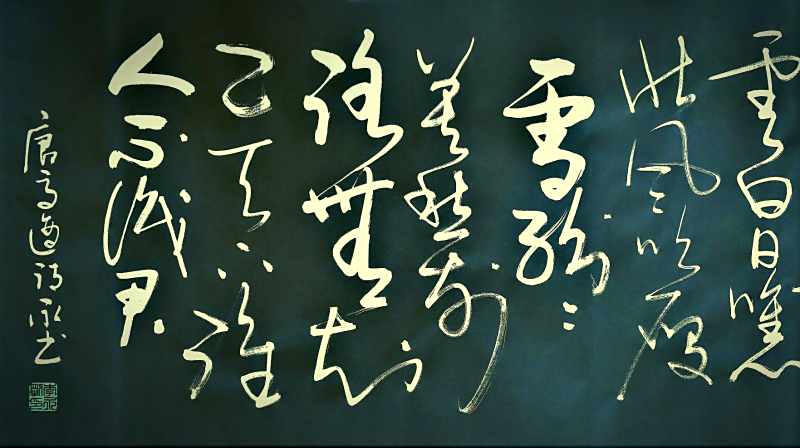 雲白日曛
北風吹雁
雪紛〻
莫愁前
路無知
己天下誰
人不識君
唐高適詩永书